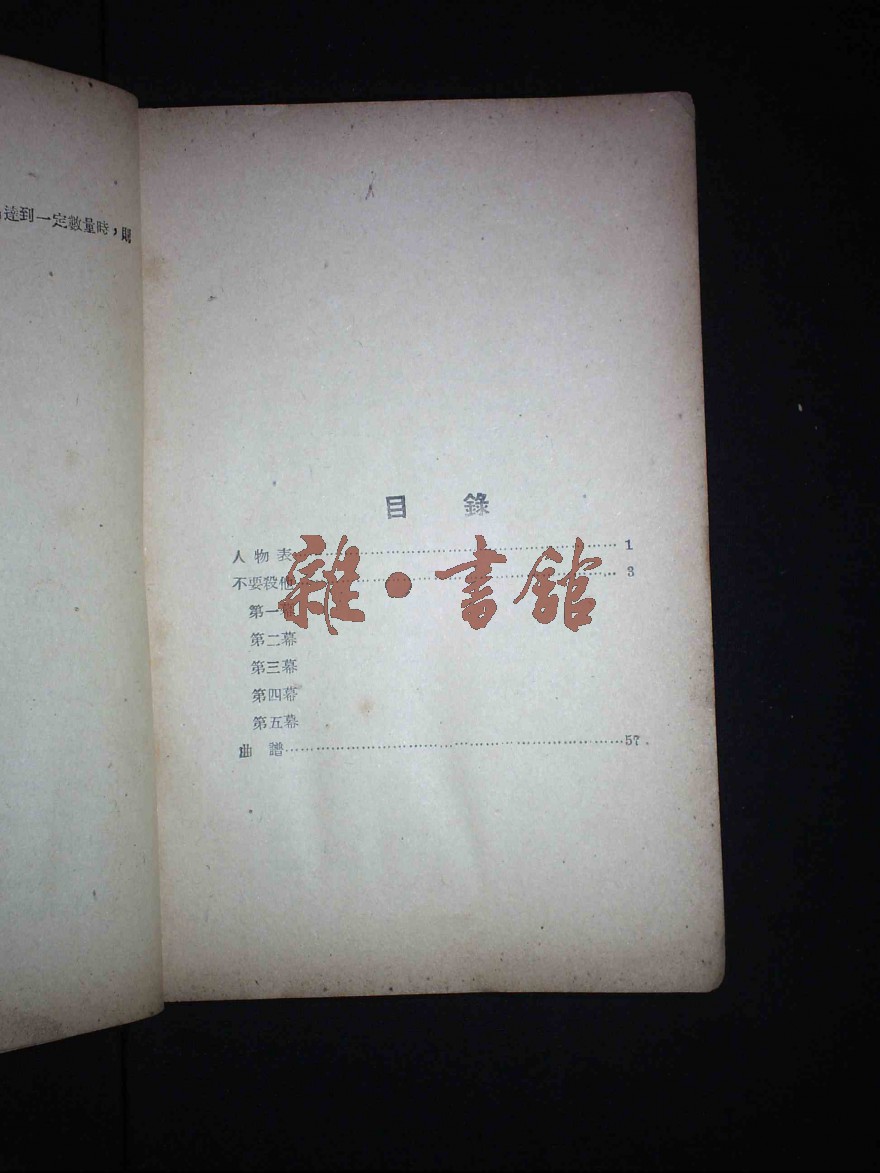 達到一定數量時，則
目錄
人物表 1
不要殺他 3
第一幕
第二幕
第三幕
第四幕
第五幕
曲譜 57
雜·書館